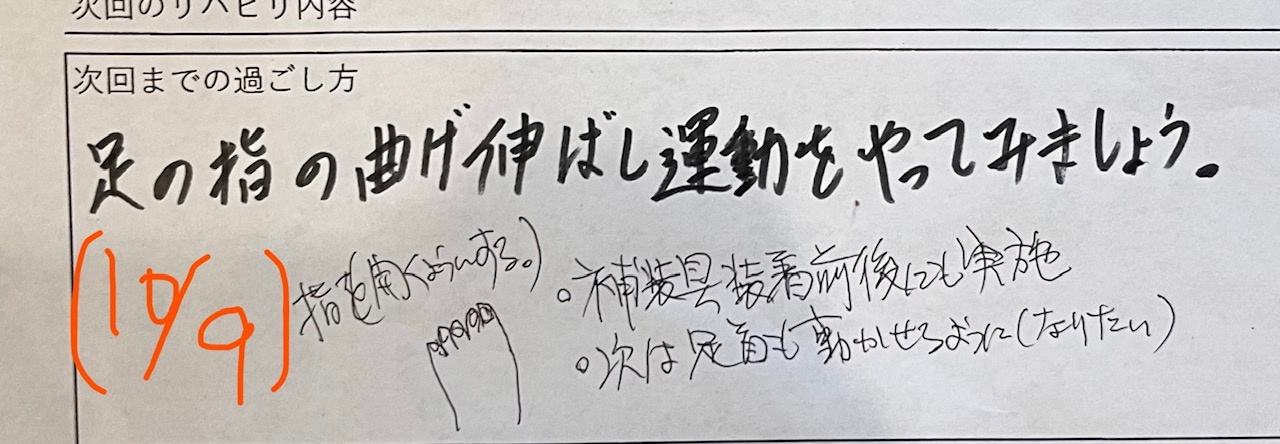 次回のリハビリ内容
次回までの過ごし方
足の指の曲げ伸ばし運動をやってみましょう。
(10/9)
指を開くようにする。)
。補装具装着前後にも実施
。次は足首も動かせるように(なりたい)